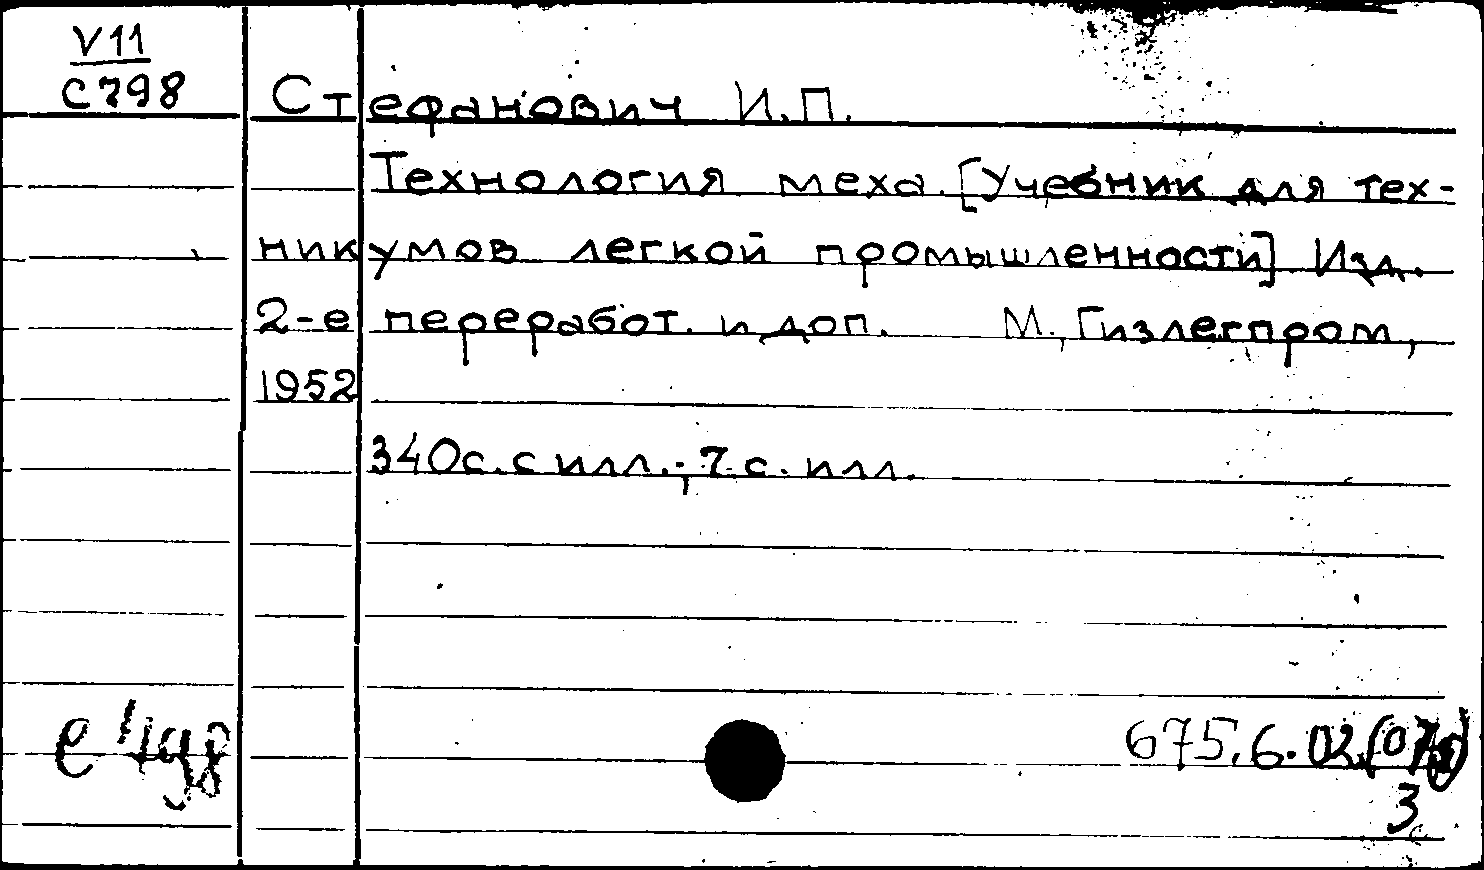 V11
С798
Стефанович И.П.
Технология меха. [Учебник для тех-
никумов легкой промышленности]. Изд.
2-е переработ. и доп. М., Гизлегпром,
1952
340с. с илл.; 7 с. илл.
675.6.02.(07)
3